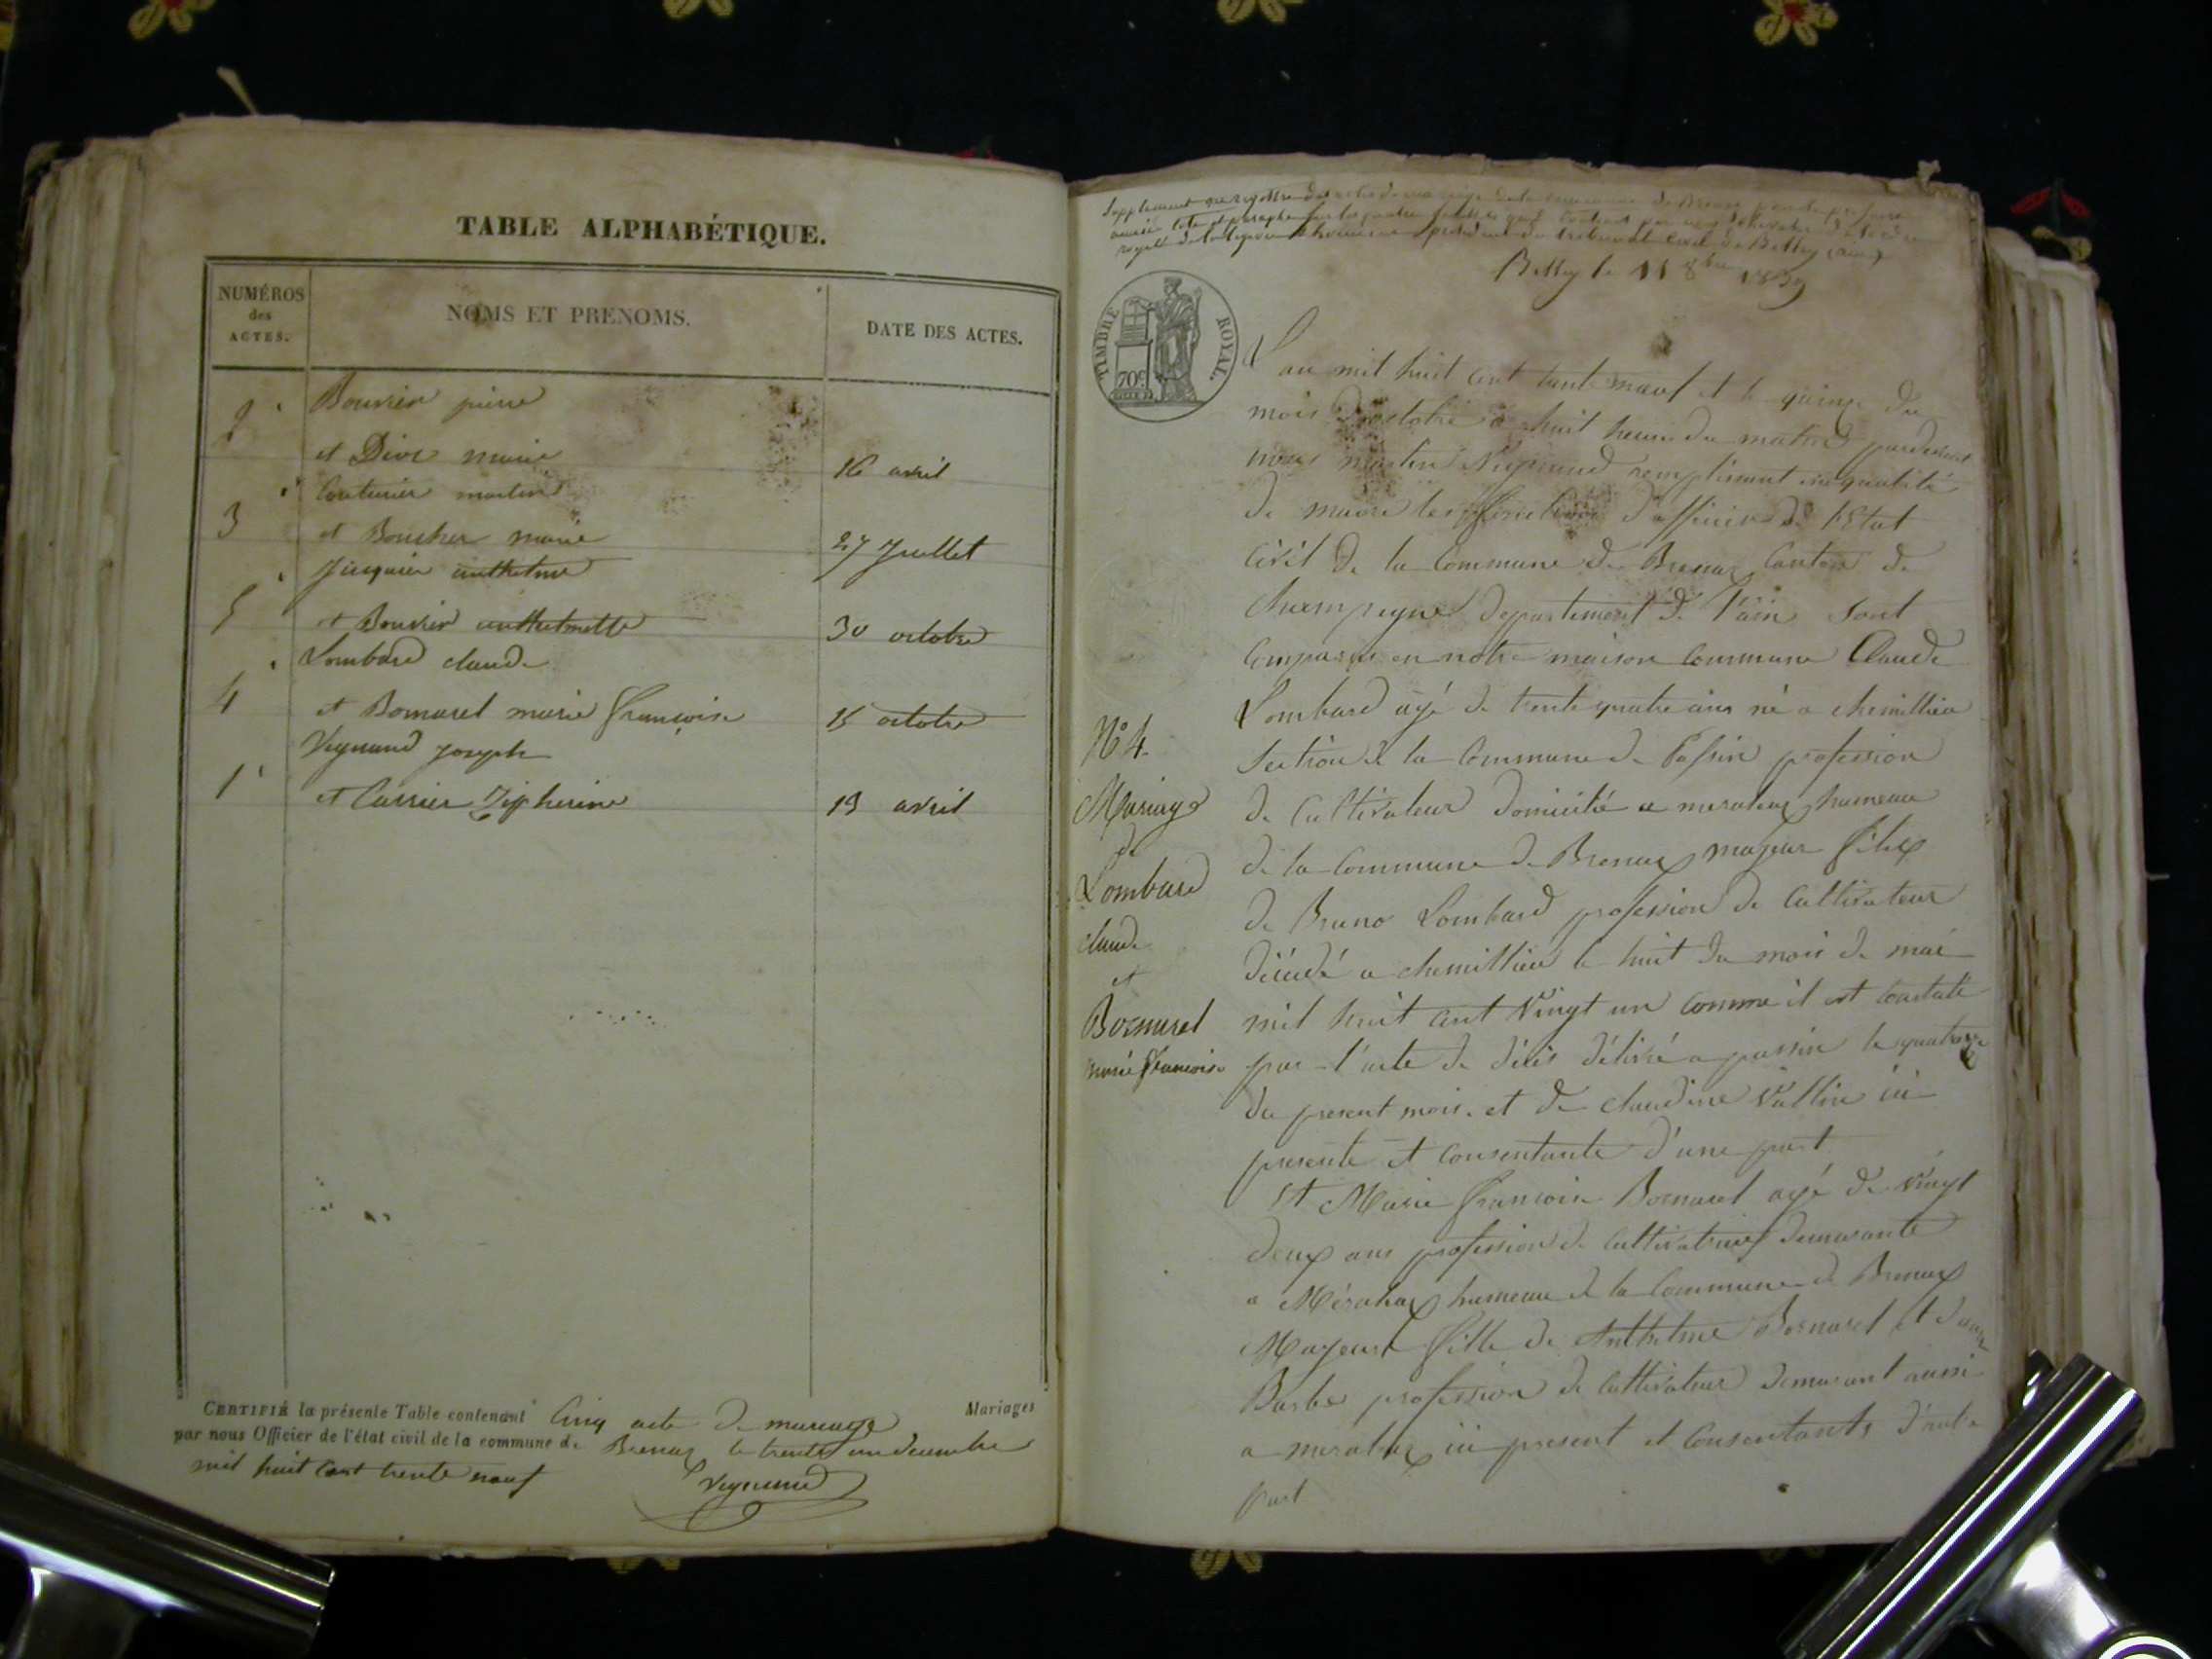 TABLE ALPHABÉTIQUE.
NUMÉROS
des
ACTES.
NOMS ET PRENOMS.
DATE DES ACTES.
2
Bouvier pierre
et Dive marie
16 avril
Couturier martin
3
et Boucher marie
27 Juillet
Jacquier anthelme
5
et Bouvier anthelmette
30 octobre
Lombard claude
4
et Bornarel marie françoise
15 octobre
Veyrand joseph
1
et Carrier Zepherine
19 avril
CERTIFIÉ la présente Table contenant Cinq acte de mariage Mariages
par nous Officier de l'état civil de la commune de Brenaz le trente un decembre
mil huit cent trente neuf
Belley le 11 8bre 1839
TIMBRE
ROYAL.
70c
L'an mil huit cent trante neuf et le quinze du
mois d'octobre a huit heure du matin pardevant
nous remplissant en qualité
de maire les fonctions d'officier de l'Etat
civil de la Commune de Brenaz Canton de
Champagne departement de l'ain sont
Comparus en notre maison commune Claude
Lombard agé de trente quatre ans né a chemillieu
Section de la Commune de Passin profession
de Cultivateur domicilié a meraleaz hameau
de la Commune de Brenaz majeur fils
de Bruno Lombard profession de Cultivateur
décédé a chemillieu le huit du mois de mai
mil huit cent vingt un comme il est constaté
par l'acte de décés délivré a passin le quatorze
du present mois. et de claudine Vallin ici
presente et consentante d'une part
Et Marie francoise Bornarel agé de vingt
deux ans profession de cultivatrice demeurante
a Méraleaz hameau de la Commune de Brenaz
Majeure fille de Anthelme Bornarel et d
Barbe profession de cultivateur demeurant aussi
a meraleaz ici present et consentants d'autre
part
N° 4.
Mariage
de
Lombard
claude
et
Bornarel
marie francoise